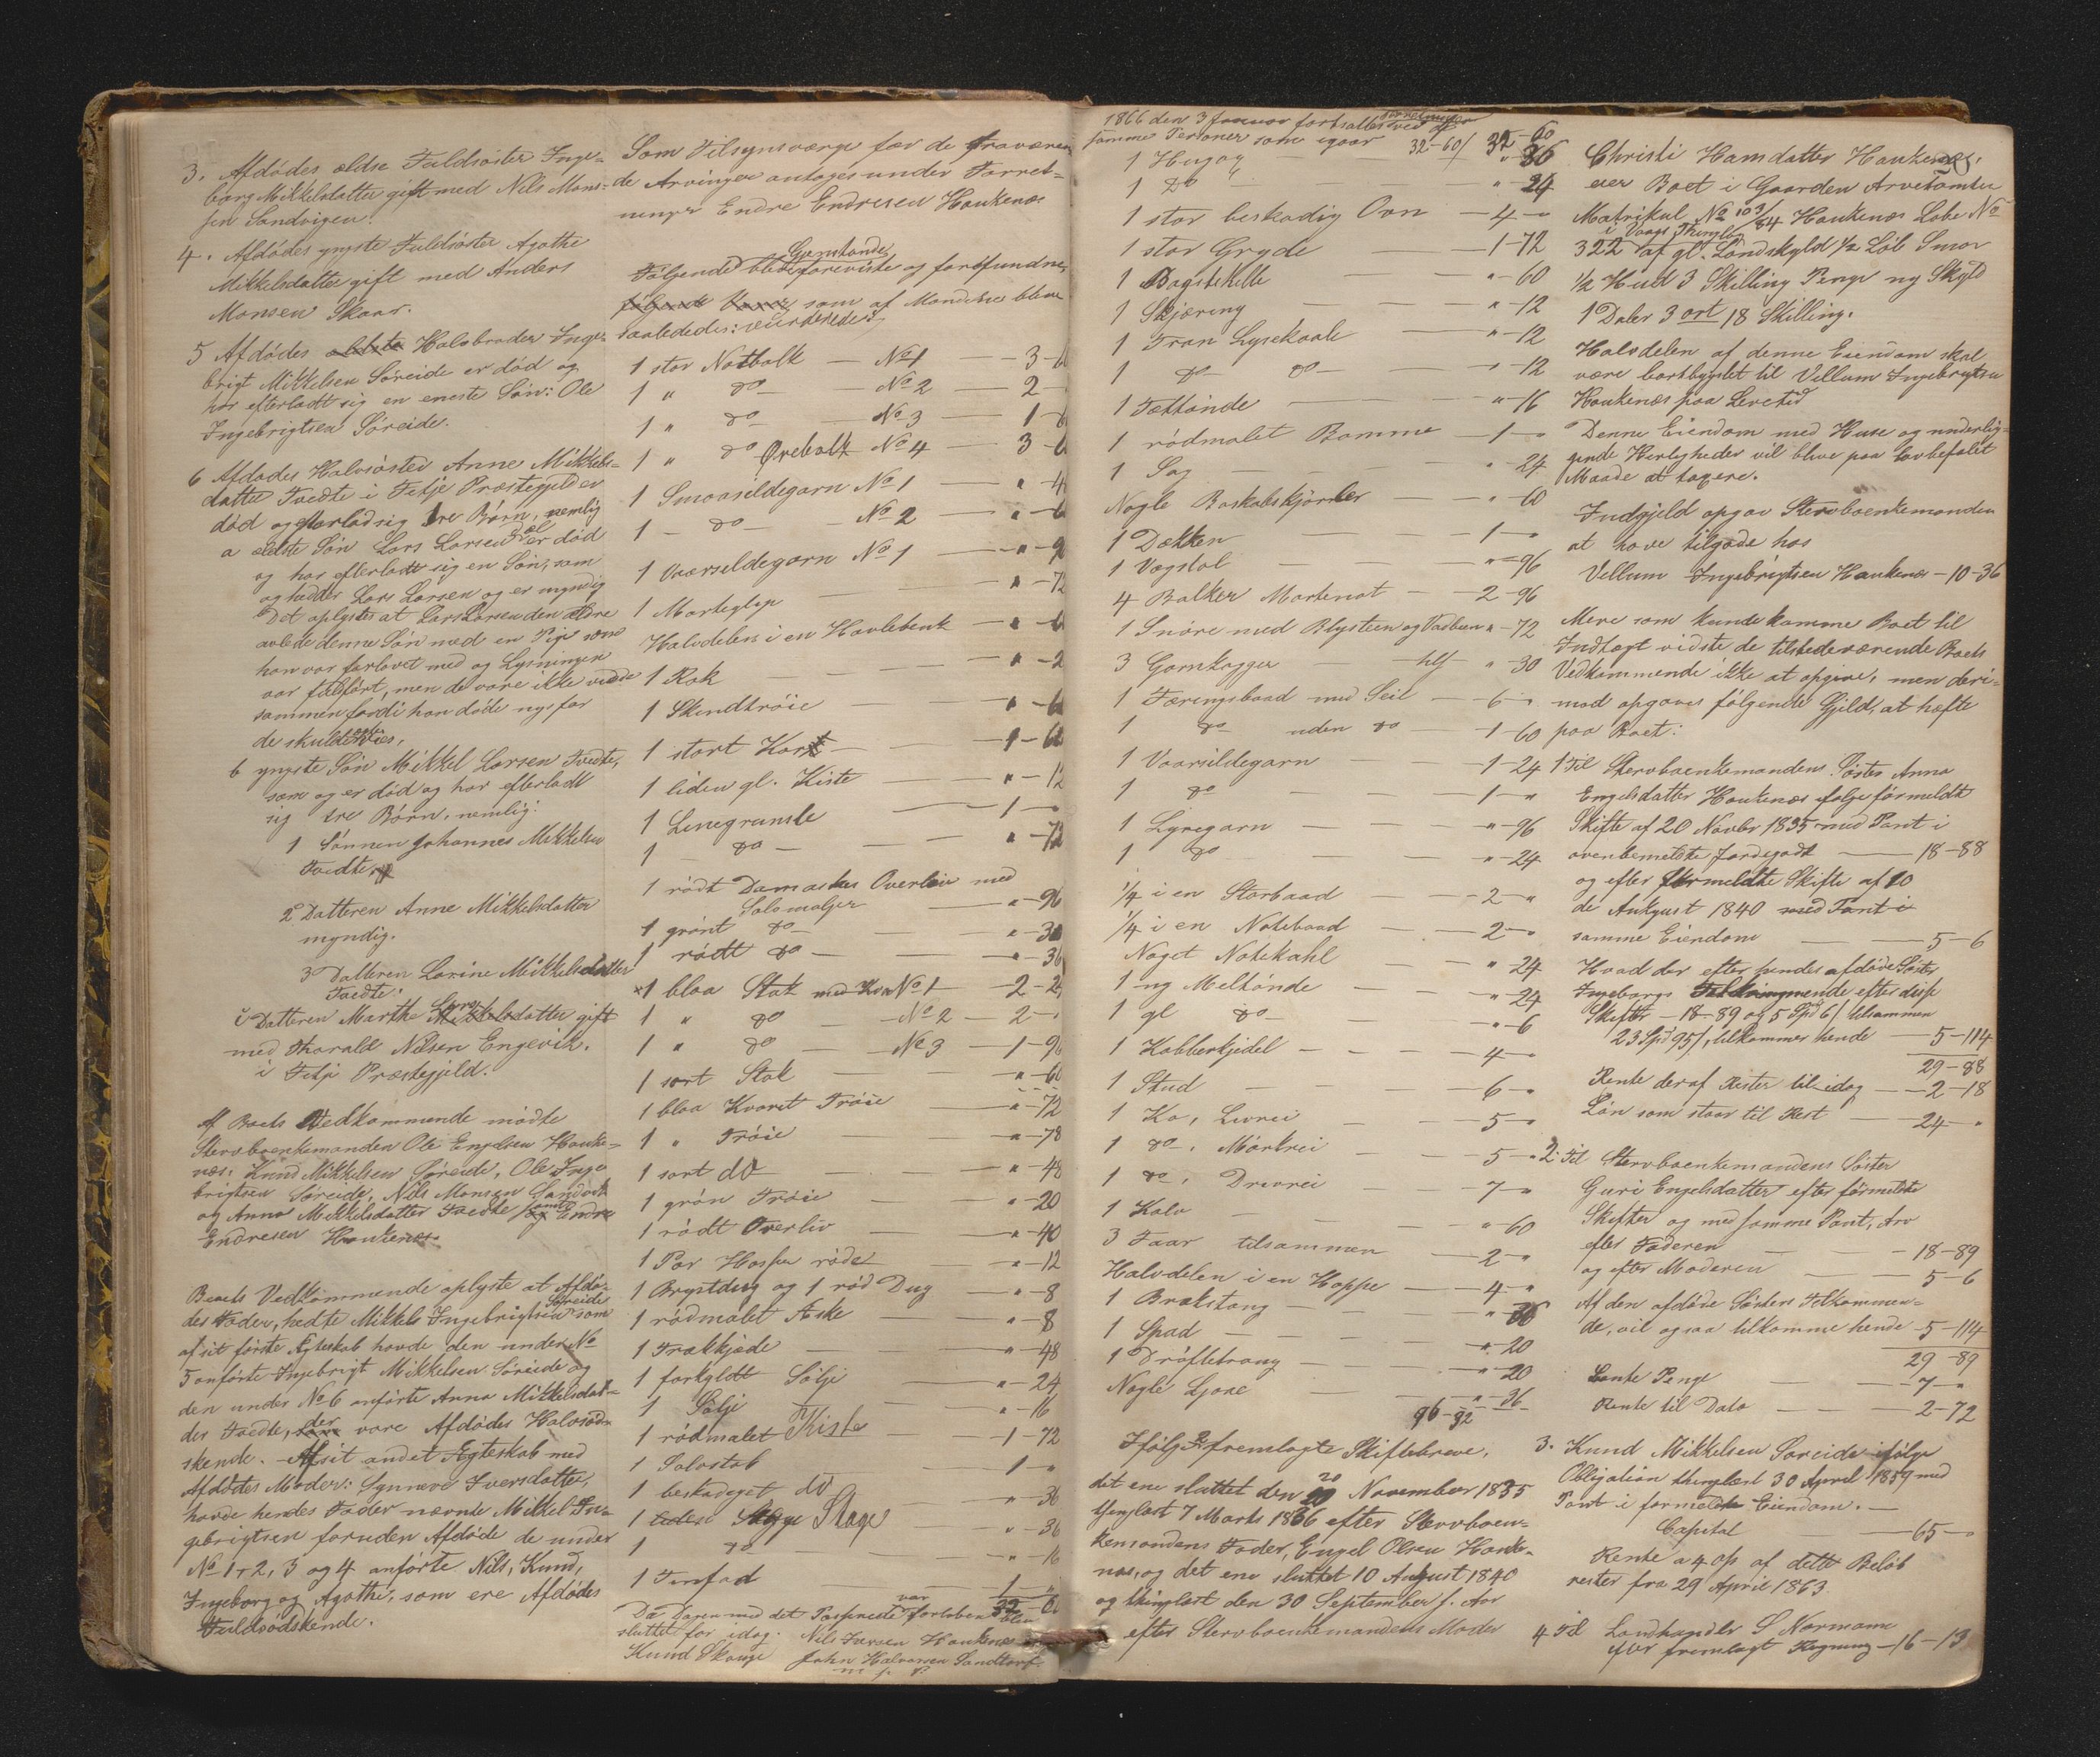 3. Afdödes ældse Fuldsöster Inge-
borg Mikkelsdatter gift med Nils Mons-
sen Sandvigen.
4. Afdödes yngste Fuldsöster Agathe
Mikkelsdatter gift med Anders
Monsen Skaar.
5 Afdödes ældste Halvbroder Inge-
brigt Mikkelsen Söreide er död og
har efterladt sig en eneste Sön: Ole
Ingebrigtsen Söreide.
6 Afdödes Halvsöster Anne Mikkels-
datter Tvedte i Fitje Præstegjeld er
död og efterlod sig tre Börn, nemlig
a ældste Sön Lars Larsen er död
og har efterladt sig en Sön, som
og hedder Lars Larsen og er myndig
Det oplystes at Lars Larsen den ældre
avlede denne Sön med en Pige som
han var forlovet med og Lysningen
var fuldfört, men de vare ikke viede
sammen fordi han döde nys för
de skulde vies.
b yngste Sön Mikkel Larsen Tvedte,
som og er död og har efterladt
sig tre Börn, nemlig:
1 Sönnen Johannes Mikkelsen
Tvedte
2 Datteren Anne Mikkelsdatter
myndig.
3 Datteren Larine Mikkelsdatter
Tvedte.
c Datteren Marthe Larsdatter gift
med Harald Nilsen Engevik.
i Fitje Præstegjeld.
Af Boets Vedkommende mödte
Stervboenkemanden Ole Engelsen Hauke-
næs, Knud Mikkelsen Söreide, Ole Inge
brigtsen Söreide, Nils Monsen Sandvik
og Anna Mikkelsdatter Tvedte samt Endre
Endresen Haukenæs.
Boets Vedkommende oplyste at Afdö-
des Fader, hedte Mikkel Ingebrigtsen Söreide som
af sit förste Ægteskab havde den under No
5 anförte Ingebrigt Mikkelsen Söreide og
den under No 6 anförte Anna Mikkelsdat-
der Tvedte, der vare Afdödes Halvsöd-
skende. Af sit andet Ægteskab med
Afdödes Moder: Synneve Iversdatter,
havde hendes Fader nævnte Mikkel In-
gebrigtsen foruden Afdöde de under
No 1, 2, 3 og 4 anförte Nils, Knud,
Ingeborg og Agathe, som ere Afdödes
Fuldsödskende.
Som Tilsynsværge for de fraværen
de Arvinger antoges under Forret-
ningen Endre Endresen Haukenæs
Gjenstande
Følgende bleve foreviste og forefundne,
som af Mændene bleve
saaledes: vurderede:
1 stor Notbolk — No 1 — 3-
1 " do — No 2 — 2-
1 " do — No 3 — 1-
1 " do Ørebolk No 4 — 3-
1 Smaasildegarn No 1 — " -4
1 - do — No 2 — " -6
1 Vaarsildegarn No 1 — " -9
1 Morteglip — " -72
Halvdelen i en Havlebenk — " -6
1 Rok — " -2
1 Skindtröie — " -6
1 stort Kar — 1-6
1 liden gl. Kiste — " -12
1 Linegrunste — 1-"
1 do — " -72
1 rödt Damaskes Overliv med
Sölvmaljer — " -96
1 grönt do — " -3
1 rödt do — " -36
1 blaa Stak No 1 — 2-2
1 " do — No 2 — 2-
1 " do — No 3 — 1-96
1 sort Stak — " -60
1 blaa Kvaret Tröie — " -72
1 " Tröie — " -78
1 sort do — " -48
1 grön Tröie — " -20
1 rödt Overliv — " -40
1 Par Hosser röde — " -12
1 Brystdug og 1 röd Dug — " -8
1 rödmalet Æske — " -8
1 Trækkjæde — " -48
1 forgyldt Sölje — " -24
1 Sölje — " -16
1 rödmalet Kiste — 1-72
1 Solvstob — 1 "
1 beskadeget do — " -36
1 Stage — " -36
1 do — " -16
1 Tinfad — 1-"
32-60
Da Dagen med det Passerede var forloben blev
sluttet for idag. Nils Iversen Haukenæs
Knud Skauge John Halvorsen Sandtorv
m. f. P.
1866 den 3 Januar fortsattes Forretningen ved de
samme Personer som igaar 32-60/ 32-60
1 Hugay — " -36
1 do — " -24
1 stor beskadig Ovn — 4-"
1 stor Gryde — 1-72
1 Bagstehelle — " -60
1 Skjæring — " -12
1 Tran Lysekaale — " -12
1 do do — " -12
1 Fættönde — " -16
1 rödmalet Bomme — 1-"
1 Sag — " -24
Nogle Boskabskjörrler — " -60
1 Dækken — 1-"
1 Vægstol — " -96
4 Bolker Mortenot — 2-96
1 Snöre med Blysteen og Vadbeen " -72
3 Garnkagger — " -30
1 Færingsbaad med Seil — 6-"
1 do uden do — 1-60
1 Vaarsildegarn — 1-24
1 do — 1-"
1 Lyregarn — " -96
1 do — " -24
1/4 i en Storbaad — 2-"
1/4 i en Notebaad — 2-"
Noget Notekahl — " 24
1 ny Meltönde — " -24
1 gl do — " -6
1 Kobberkjedel — 4-"
1 Stud — 6-"
1 Ko, Livrei — 5-"
1 do, Mörkrei — 5-"
1 do, Drivrei — 7-"
1 Kalv — " -60
3 Faar tilsammen — 2-"
Halvdelen i en Hoppe — 4-"
1 Brækstang — " -36
1 Spad — " -20
1 Dröftetroug — " -20
Nogle Ljore — " -36
96-92
Ifölge fremlagte Skiftebreve,
det ene sluttet den 20 November 1835
thinglæst 7 Marts 1836 efter Stervboen-
kemandens Fader, Engel Olsen Hauke-
næs, og det ene sluttet 10 August 1840
og thinglæst den 30 September s. Aar
efter Stervboenkemandens Moder
Christi Hansdatter Haukenæs,
eier Boet i Gaarden Arvetomten
Matrikul No 103/84 Haukenæs Löbe No
i Vaags Thinglag
322 af gl. Landskyld 1/2 Löb Smör
1/2 Hud 3 Skilling Penge ny Skyld
1 Daler 3 ort 18 Skilling.
Halvdelen af denne Eiendom skal
være bortbygslet til Villum Ingebrigtsen
Haukenæs paa Levetid
Denne Eiendom med Huse og underlig-
gende Herligheder vil blive paa lovbefalet
Maade at taxere.
Indgjeld opgav Stervboenkemanden
at have tilgode hos
Villum Ingebrigtsen Haukenæs - 10-36
Mere som kunde komme Boet til
Indtægt vidste de tilstedeværende Boets
Vedkommende ikke at opgive, men deri-
mod opgaves fölgende Gjeld, at hæfte
paa Boet:
1 Til Stervboenkemandens Söster Anna
Engelsdatter Haukenæs ifölge förmeldte
Skifte af 20 Novbr 1835 med Pant i
ovenbemeldte Jordegods — 18-88
og efter förmeldte Skifte af 10
de Augusst 1840 med Pant i
samme Eiendom — 5-6
Hvad der efter hendes afdöde Söster
Ingeborgs efter disse
Skifter - 18-89 og 5 Spd 6/ tilsammen
23 Spd 95/, tilkommer hende — 5-114
29-88
Rente deraf Rester til idag — 2-18
Lön som staar til Rest — 24-"
2 Til Stervboenkemandens Söster
Guri Engelsdatter efter förmeldte
Skifter og med samme Pant, Arv
efter Faderen — 18-89
og efter Moderen — 5-6
Af den afdöde Sösters Tilkommen-
de, vil ogsaa tilkomme hende - 5-114
29-89
Laante Penge — 7-"
Rente til Dato — 2-72
3. Knud Mikkelsen Söreide ifölge
Obligation thinglæst 30 April 1859 med
Pant i formeldte Eiendom. —
Capital — 65-"
Rente a 4 op af dette Belöb
rester fra 29 April 1863.
4 Til Landhandler S Normann
efter fremlagt Regning - 16-13